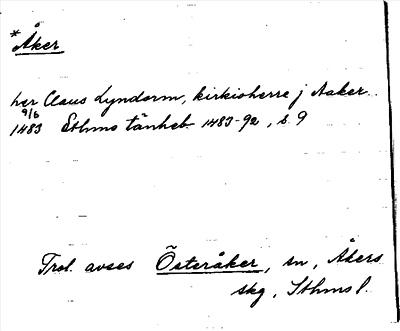 * Åker
her Claus Lyndorm, kirkioherre j Aaker.
9/6
1483 Sthms tänkeb. 1483-92, s. 9
Trol. avses Österåker, sn, Åkers
skg, Sthms l.